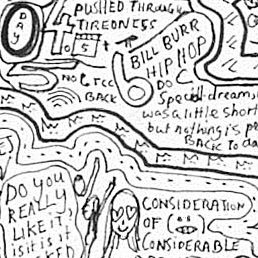 DAY
04
PUSHED THROUGH
TIREDNESS
BILL BURR
HIP HOP
DOC
Special-dreams
was a little short
but nothing's pe
BACK to da
BACK
6
DO YOU
REALLY
LIKE IT,
is it is it
CONSIDERATION
OF
CONSIDERABLE